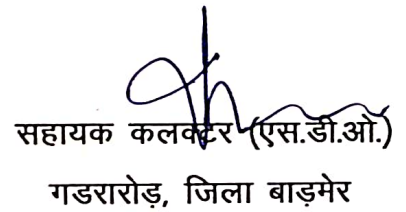 सहायक कलक्टर (एस.डी.ओ.)
गडरारोड़, जिला बाड़मेर